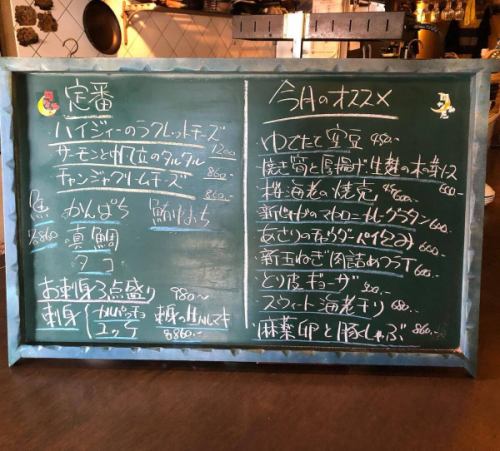 定番
ハイジィーのラクレットチーズ 1200
サーモンと帆立のタルタル 860.-
チャンジャクリームチーズ 860.-
魚 各860 かんぱち
真鯛
タコ
お刺身3点盛り 980~
刺身 カルパッチョ ユッケ 各860.-
今月のオススメ
ゆでたて空豆 480.-
焼き筍と厚揚げ、生麩の木の芽 600.-
桜海老の焼売 600.-
新じゃがのマカロニ グラタン 600.-
あさりのチャウダーパイ包み 600.-
新玉ねぎ肉詰めフライ 600.-
とり皮ギョーザ
スウィート海老チリ 680.-
麻薬卵と豚しゃぶ 860.-